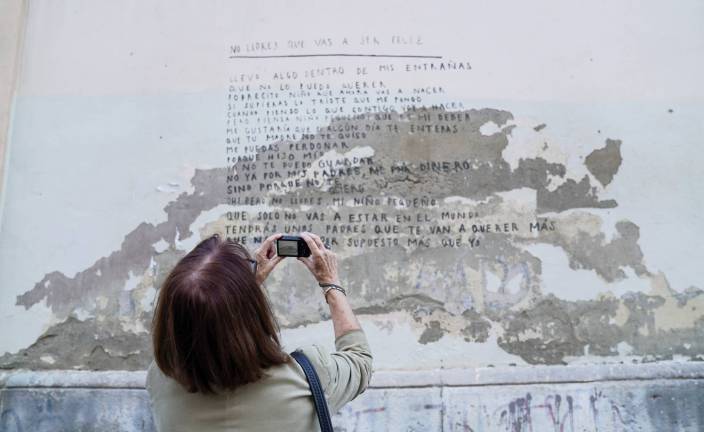 NO LLORES QUE VAS A SER FELIZ
LLEVO ALGO DENTRO DE MIS ENTRAÑAS
QUE NO LO PUEDO QUERER
POBRECITO NIÑO QUE AHORA VAS A NACER
SI SUPIERAS LO TRISTE QUE ME PONGO
CUANDO PIENSO LO QUE CONTIGO VOY A HACER
PERO PIENSA NIÑO PEQUEÑO QUE ES MI DEBER
ME GUSTARÍA QUE ALGÚN DÍA TE ENTERAS
QUE TU MADRE NO TE QUISO
ME PUEDAS PERDONAR
PORQUE HIJO MÍO
YA NO TE PUEDO GUARDAR
NO YA POR MIS PADRES, NI POR DINERO
SINO PORQUE NO TE QUIERO
PERO NO LLORES MI NIÑO PEQUEÑO
QUE SOLO NO VAS A ESTAR EN EL MUNDO
TENDRÁS UNOS PADRES QUE TE VAN A QUERER MÁS
QUE NO SUPUESTO MÁS QUE YO